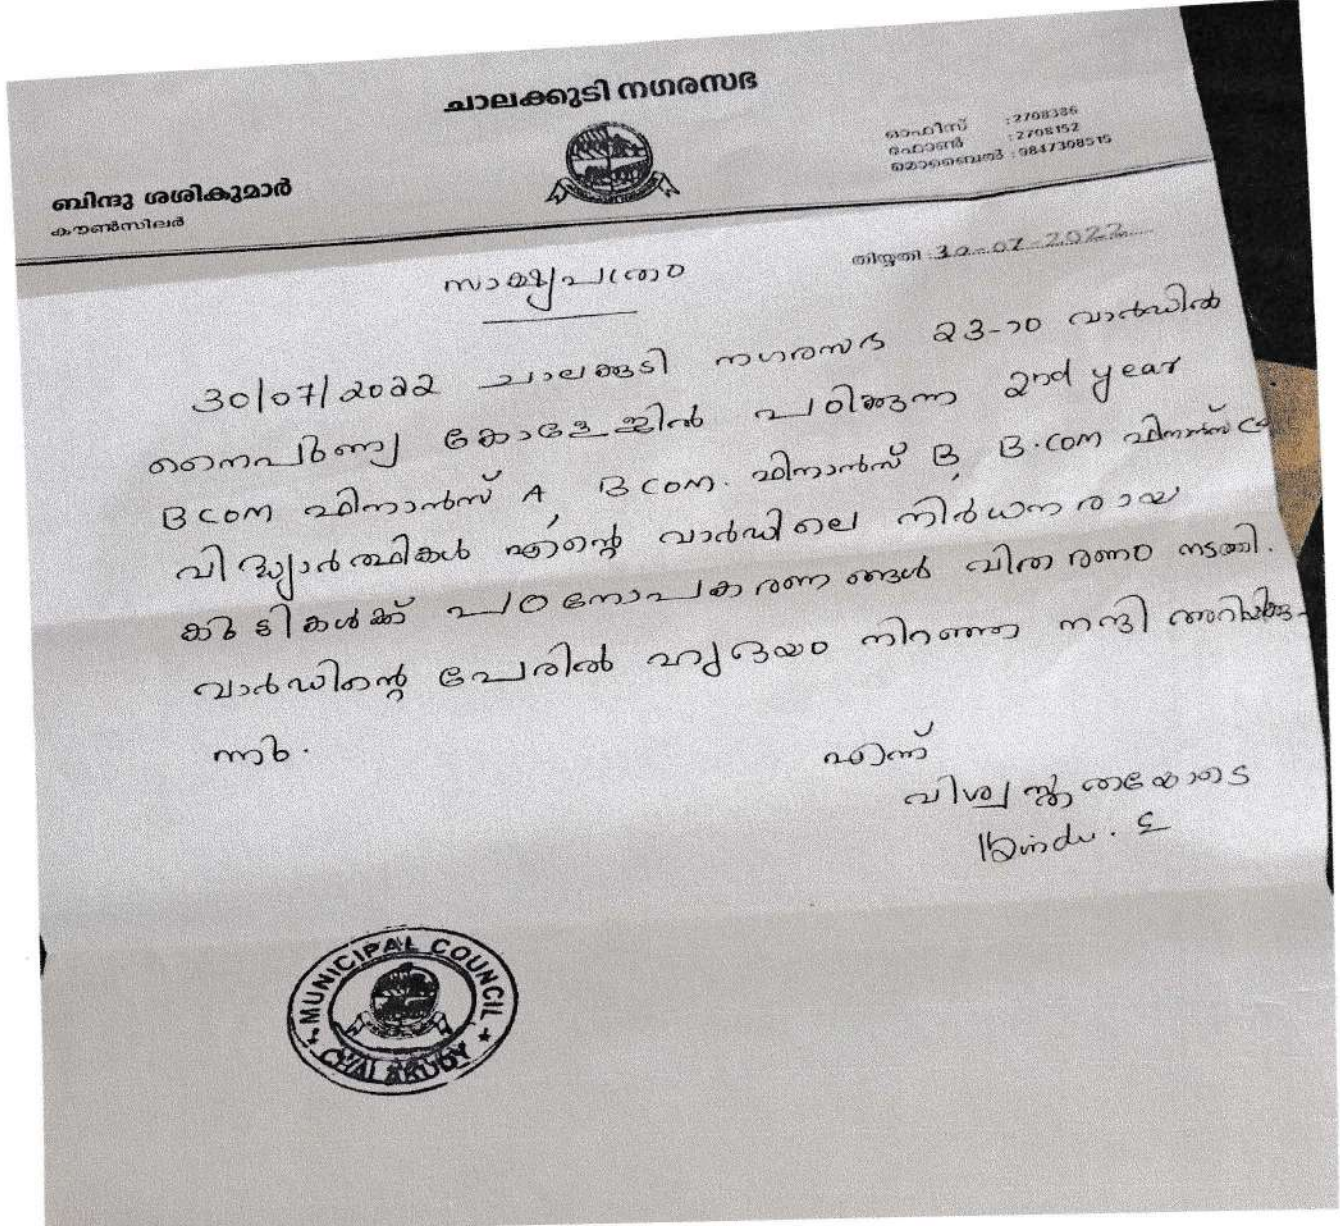 ചാലക്കുടി നഗരസഭ
ഓഫീസ് : 2708386
ഫോൺ : 2708152
മൊബൈൽ : 9847308515
ബിന്ദു ശശികുമാർ
കൗൺസിലർ
തിയ്യതി 30-07-2022
സാക്ഷ്യപത്രം
30/07/2022 ചാലക്കുടി നഗരസഭ 23-ാം വാർഡിൽ
നൈപുണ്യ കോളേജിൽ പഠിക്കുന്ന 2nd year
B COM ഫിനാൻസ് A, B COM. ഫിനാൻസ് B, B.COM ഫിനാൻസ്
വിദ്യാർത്ഥികൾ എന്റെ വാർഡിലെ നിർധനരായ
കുട്ടികൾക്ക് പഠനോപകരണങ്ങൾ വിതരണം നടത്തി.
വാർഡിന്റെ പേരിൽ ഹൃദയം നിറഞ്ഞ നന്ദി അറിയിക്കു-
ന്നു.
എന്ന്
വിശ്വസ്തതയോടെ
Bindu. S
MUNICIPAL COUNCIL
CHALAKUDY